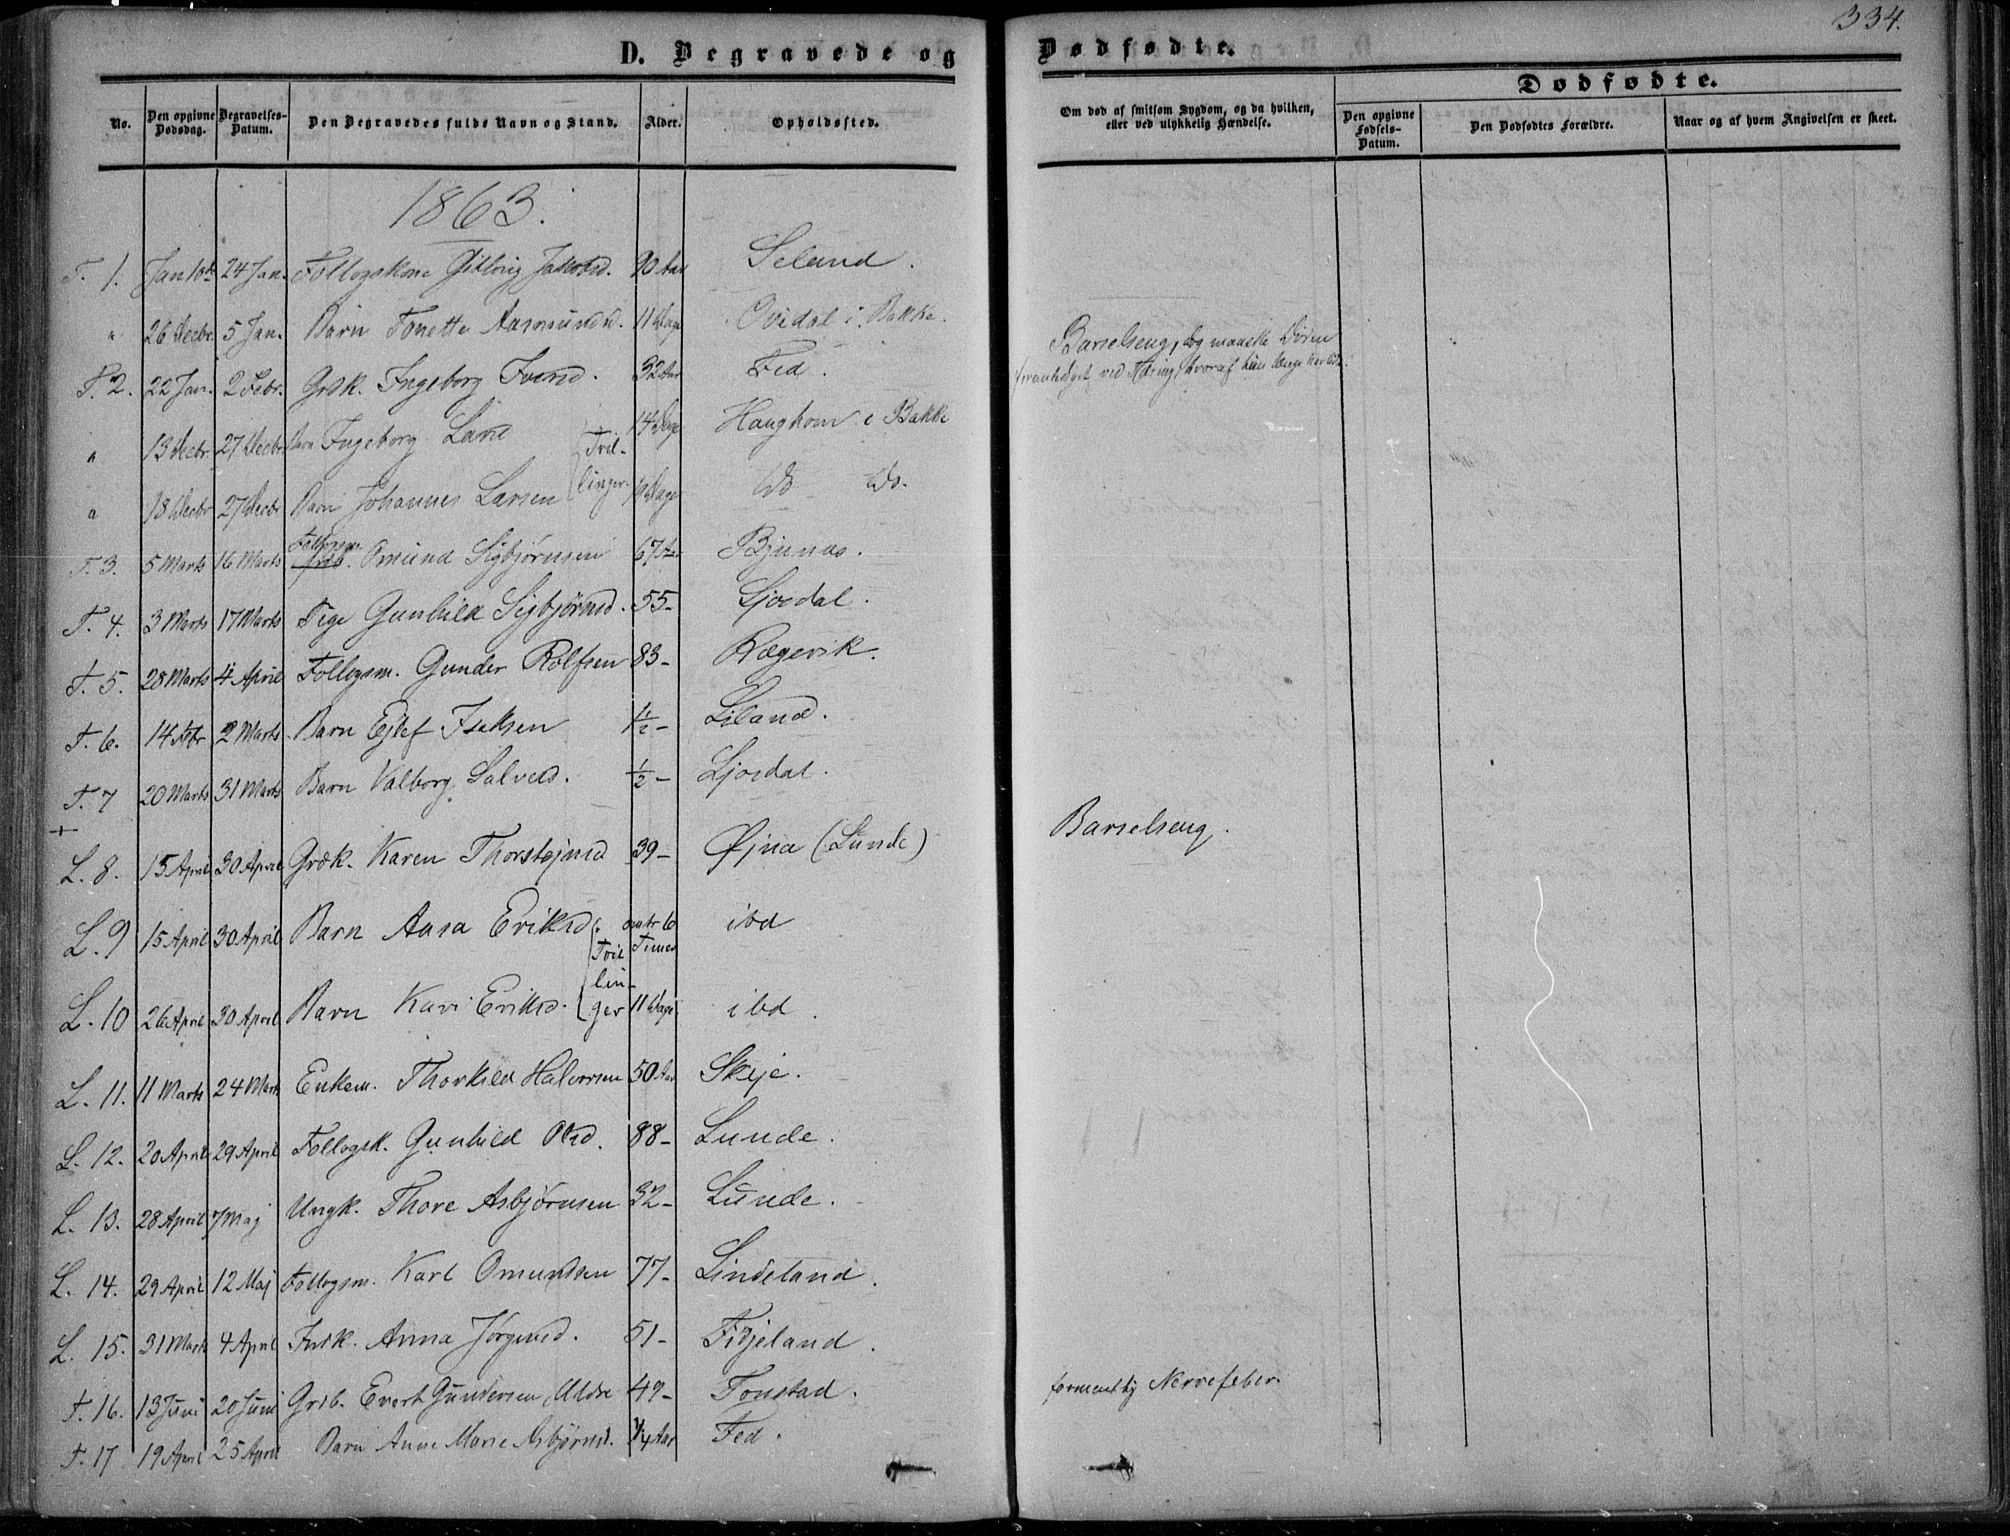 334.
D. Begravede og Dødfødte.
Dødfødte.
No. Den opgivne Dødsdag. Begravelses-Datum. Den Begravedes fulde Navn og Stand. Alder. Opholdssted. Om død af smitsom Sygdom, og da hvilken, eller ved ulykkelig Hændelse. Den opgivne Fødsels-Datum. Den Dødfødtes Forældre. Naar og af hvem Angivelsen er skeet.
1863.
F. 1. Jan 10de 24 Jan. Follogskone 90 Aar Seland.
" 26 Decbr. 5 Jan. Barn Tonette Aasmundsd. 11 Dage Ovedal i Bakke.
F. 2. 22 Jan. 2 Febr. Grdk. Ingeborg Iversd. 32 Aar Fed. Barselseng, dog maaskee Døden
ved hvoraf hun længe har lidt.
" 13 Decbr. 27 Decbr. Barn Ingeborg Larsd 14 Dage Haughom i Bakke
Tvil-
linger.
" 18 Decbr 27 Decbr Barn Johannes Larsen Dage do do.
F. 3. 5 Marts 16 Marts Follogsm. Omund Sigbjørnsen 67 Aar Bjunas.
F. 4. 3 Marts 17 Marts Pige Gunhild Sigbjørnsd. 55- Ljosdal.
F. 5. 28 Marts 4 April Follogsm. Gunder Rolfsen 83- Rægevik.
F. 6. 14 Febr 2 Marts Barn Ejlef Isaksen 1/2- Liland.
F. 7 20 Marts 31 Marts Barn Valborg Salvesd. 1/2- Ljosdal.
+
L. 8. 15 April 30 April Grdk. Karen Thorstejnsd 39- Øjna (Lunde) Barselseng.
L. 9 15 April 30 April Barn Aasa Eriksd. omtr 6 Timer ibd
Tvil
lin-
ger
L. 10 26 April 30 April Barn Kari Eriksd. 11 Dage ibd.
L. 11. 11 Marts 24 Marts Enkem. Thorkild Halvorsen 50 Aar Skeje.
L. 12. 20 April 29 April Follogsk. Gunhild Olsd. 88- Lunde.
L. 13. 28 April 7 Maj Ungk. Thore Asbjørnsen 32- Lunde.
L. 14. 29 April 12 Maj Follogsm. Karl Omundsen 77- Lindeland.
L. 15. 31 Marts 4 April Insk. Anna Jørgensd. 51- Fidjeland.
F. 16. 13 Juni 20 Juni Grdb. Evert Gundersen Mldre 49- Tonstad. formentlig Nervefeber.
F. 17 19 April 25 April Barn Anne Marie Asbjørnsd. 1/4 Aar Fed.